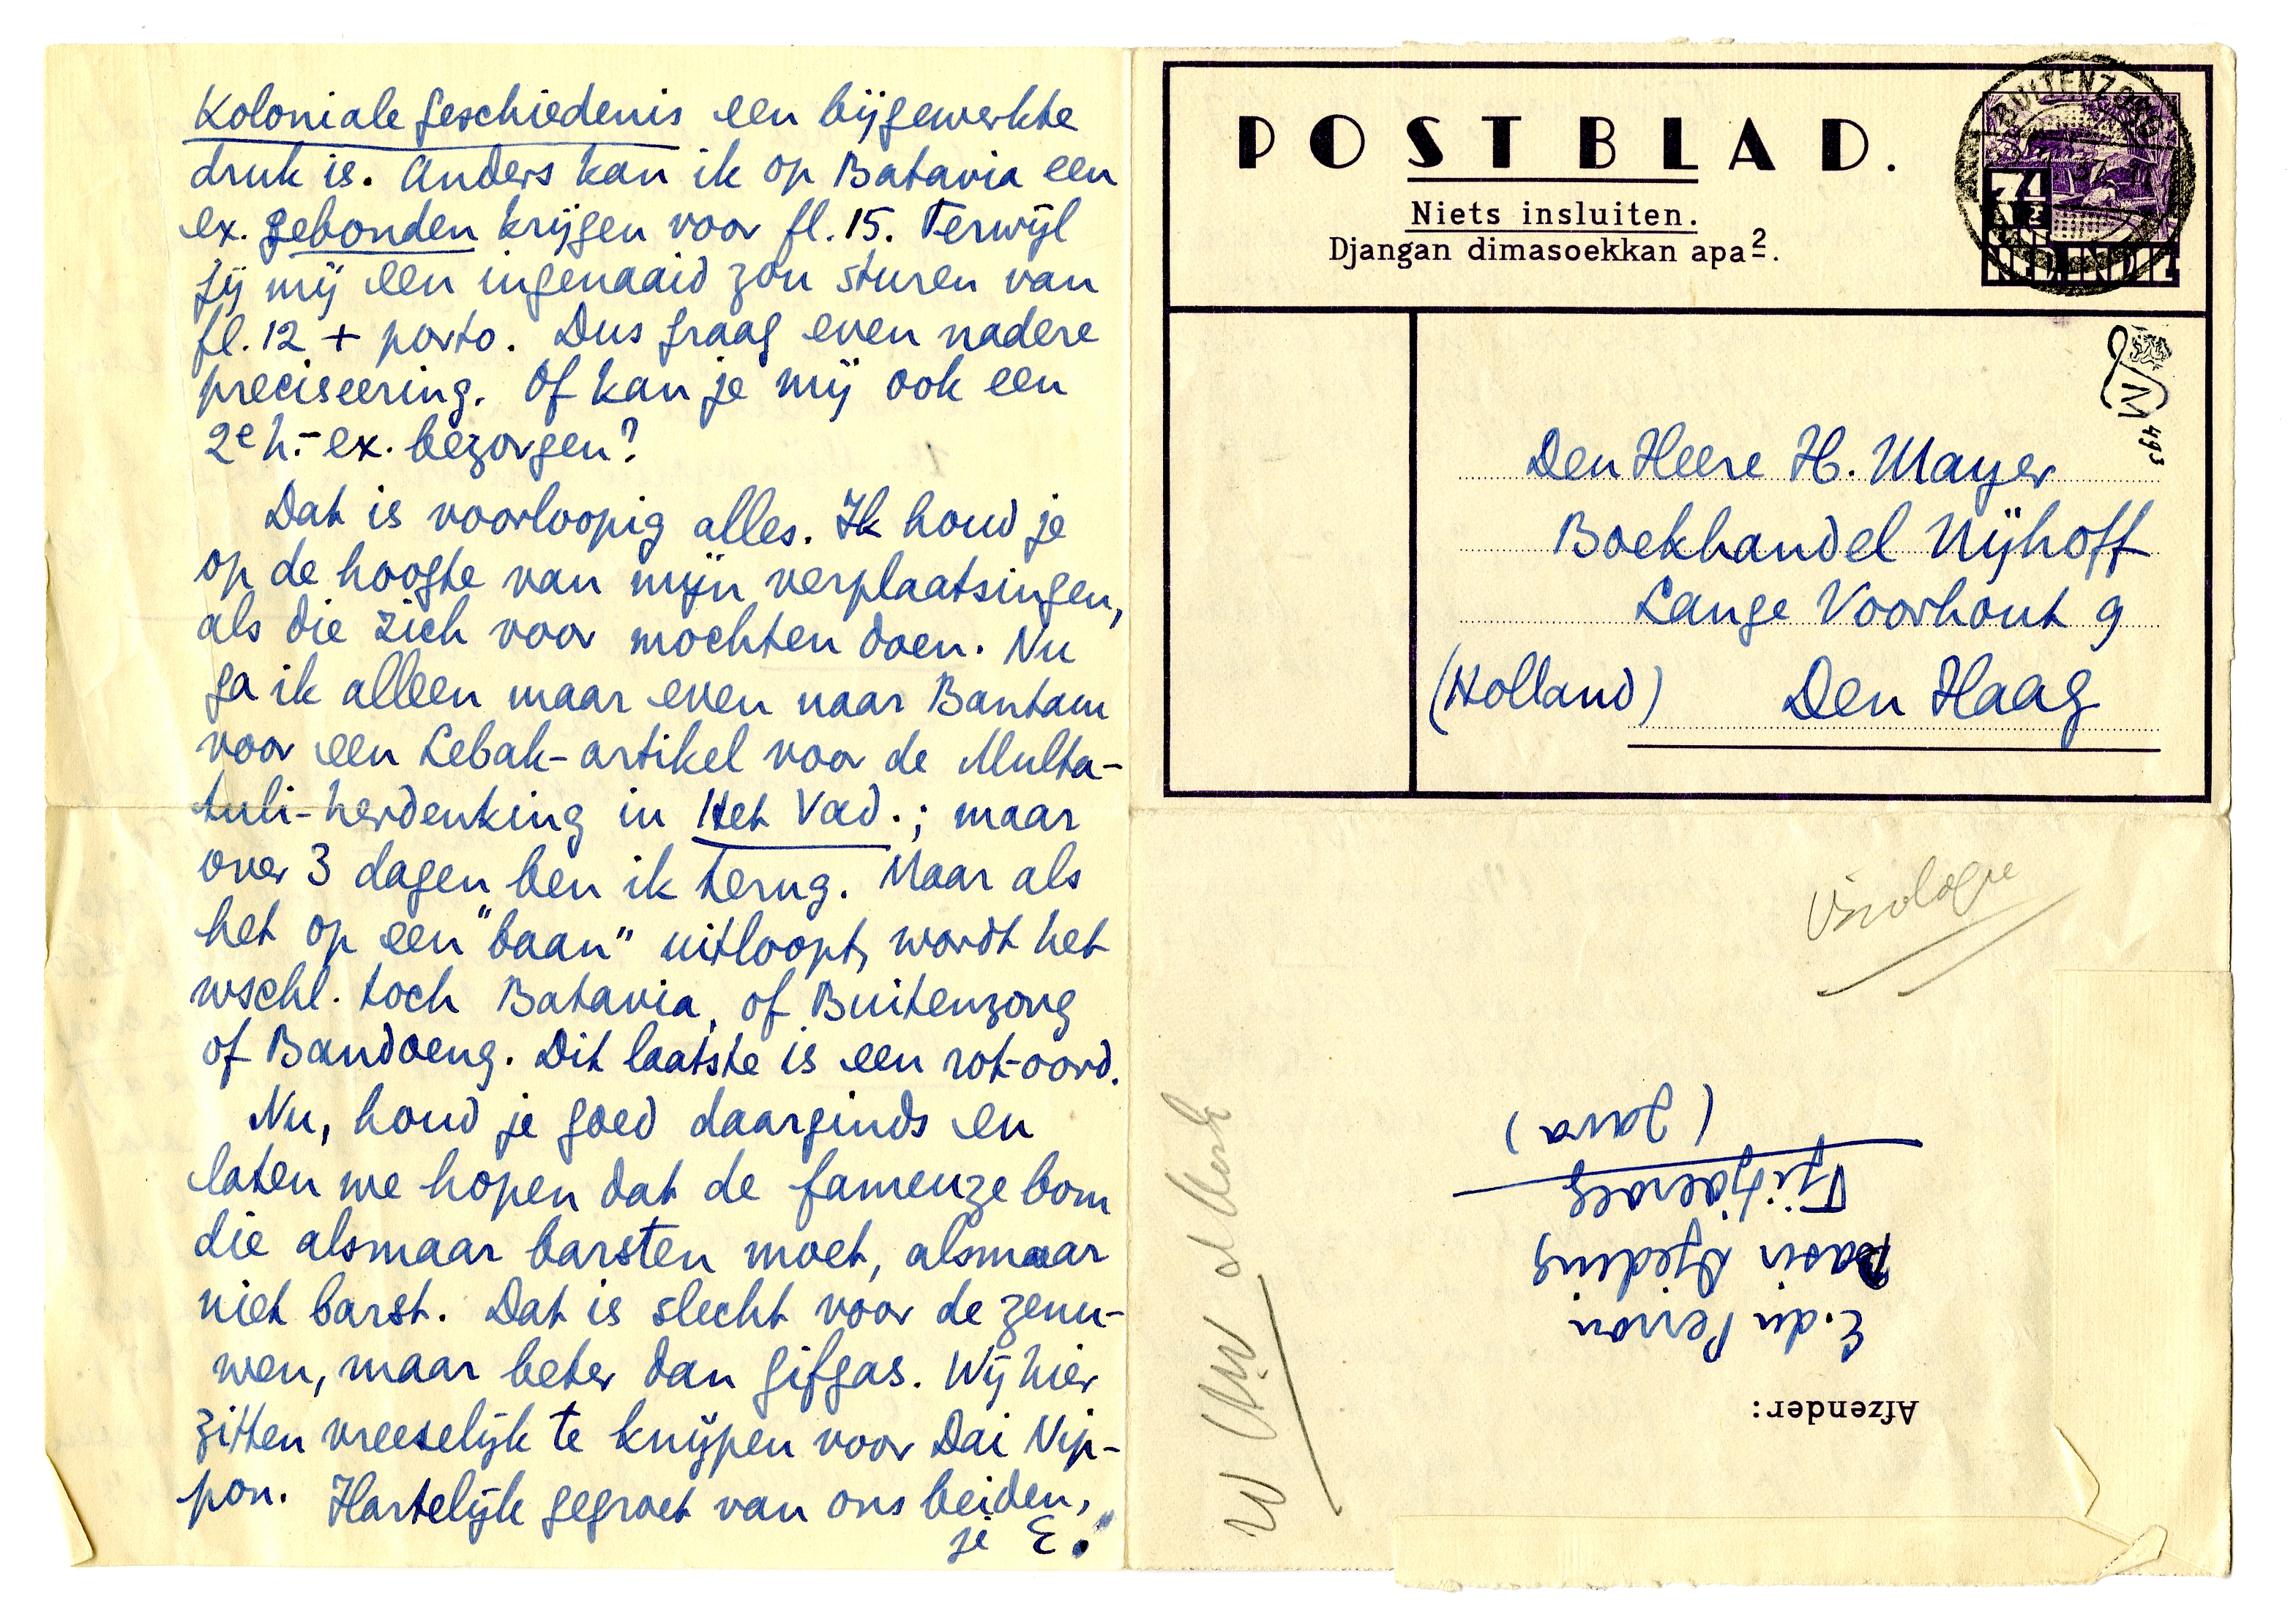 Koloniale geschiedenis een bijgewerkte
druk is. Anders kan ik op Batavia een
ex. gebonden krijgen voor fl. 15. Terwijl
jij mij een ingenaaid zou sturen van
fl. 12 + porto. Dus graag even nadere
preciseering. Of kan je mij ook een
2e h.-ex. bezorgen?
Dat is voorloopig alles. Ik houd je
op de hoogte van mijn verplaatsingen,
als die zich voor mochten doen. Nu
ga ik alleen maar even naar Bantam
voor een Lebak-artikel voor de Multa-
tuli-herdenking in Het Vad.; maar
over 3 dagen ben ik terug. Maar als
het op een "baan" uitloopt, wordt het
wschl. toch Batavia, of Buitenzorg
of Bandoeng. Dit laatste is een rot-oord.
Nu, houd je goed daarginds en
laten we hopen dat de fameuze bom
die alsmaar barsten moet, alsmaar
niet barst. Dat is slecht voor de zenu-
wen, maar beter dan gifgas. Wij hier
zitten vreeselijk te knijpen voor Dai Nip-
pon. Hartelijk gegroet van ons beiden,
je E.
POSTBLAD.
Niets insluiten.
Djangan dimasoekkan apa2.
BUITENZORG
37
7½
NED. INDIE
M 493
Den Heere H. Mayer
Boekhandel Nijhoff
Lange Voorhout 9
(Holland) Den Haag
Afzender:
E. du Perron
Pasir Djeding
Tjitjoeroeg
(Java)